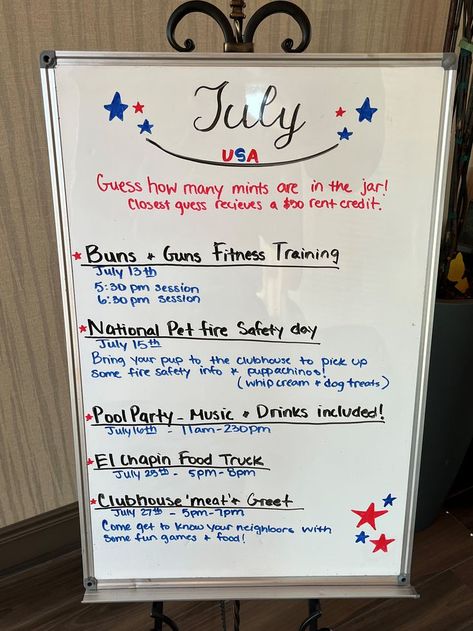 July
USA
Guess how many mints are in the jar!
Closest guess recieves a $50 rent credit.
Buns + Guns Fitness Training
July 13th
5:30 pm session
6:30 pm session
National Pet fire Safety day
July 15th
Bring your pup to the clubhouse to pick up
some fire safety info + puppachinos!
(whip cream + dog treats)
Pool Party - Music + Drinks included!
July 16th - 11am-230pm
El Chapin Food Truck
July 25th - 5pm-8pm
Clubhouse 'meat' + Greet
July 27th - 5pm-7pm
Come get to know your neighbors with
some fun games + food!